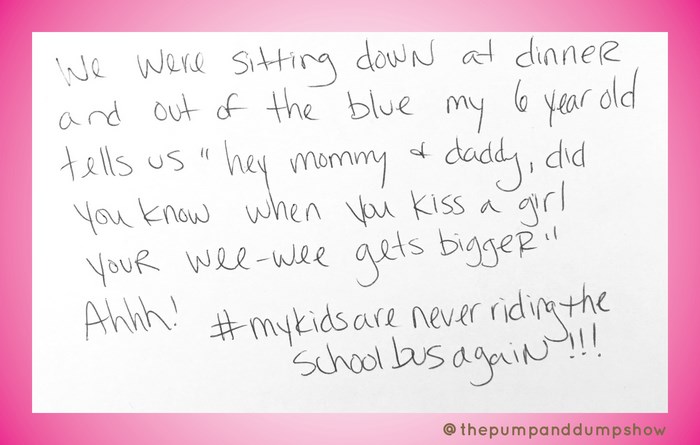 We were sitting down at dinner
and out of the blue my 6 year old
tells us " hey mommy & daddy, did
you know when you kiss a girl
your wee-wee gets bigger "
Ahhh! #mykidsare never ridingthe
schoolbusagain !!!
@thepumpanddumpshow